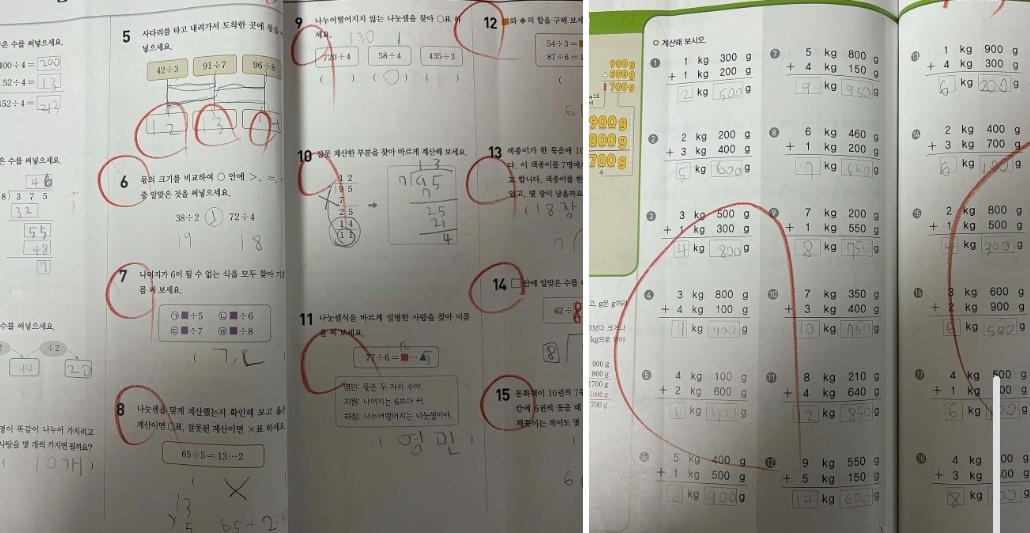 은 수를 써넣으세요.
400÷4= 200
52÷4= 13
452÷4= 213
은 수를 써넣으세요.
46
8) 3 7 5
32
55
48
7
수를 써넣으세요.
÷2
40 20
명이 똑같이 나누어 가지려고
사탕을 몇 개씩 가지면 될까요?
( 10개 )
5 사다리를 타고 내려가서 도착한 곳에 몫을
넣으세요.
42÷3 91÷7 96÷8
12 13
6 몫의 크기를 비교하여 ○ 안에 >, =,
중 알맞은 것을 써넣으세요.
38÷2 72÷4
19 18
7 나머지가 6이 될 수 없는 식을 모두 찾아 기
호를 써 보세요.
㉠ ■÷5 ㉡ ■÷6
㉢ ■÷7 ㉣ ■÷8
( ㄱ, ㄴ
8 나눗셈을 맞게 계산했는지 확인해 보고 옳은
계산이면 ○표, 잘못된 계산이면 ×표 하세요
65÷5=13…2
( ×
13
× 5
9 나누어떨어지지 않는 나눗셈을 찾아 ○표 하
세요.
130
720÷4 58÷4 435÷3
( ) ( ○ ) ( )
10 잘못 계산한 부분을 찾아 바르게 계산해 보세요.
1 2
9 5
7
2 5
1 4
1 1
➡
13
7) 95
7
25
21
4
11 나눗셈식을 바르게 설명한 사람을 찾아 이름
을 써 보세요.
77÷6=■…▲
영민: 몫은 두 자리 수야.
지원: 나머지는 6보다 커.
하정: 나누어떨어지는 나눗셈이야.
( 영민 )
12 ■와 ◆의 합을 구해 보세
54÷3=■
87÷6=
13 색종이가 한 묶음에 10
다. 이 색종이를 7명에
고 합니다. 색종이를 한
있고, 몇 장이 남을까요
( 18장
14 □ 안에 알맞은 수를
62÷8
8
15 동화책이 10권씩 7
칸에 6권씩 꽂을 때
책꽂이는 적어도 몇
900g
+800g
1700g
900g
800g
700g
900 g
800 g
1700 g
1000 g
700 g
계산해 보시오.
1 1 kg 300 g
+ 1 kg 200 g
2 kg 500 g
2 2 kg 200 g
+ 3 kg 400 g
5 kg 600 g
3 3 kg 500 g
+ 1 kg 300 g
4 kg 800 g
4 3 kg 800 g
+ 4 kg 100 g
7 kg 900 g
5 4 kg 100 g
+ 2 kg 600 g
6 kg g
6 5 kg 400 g
+ 1 kg 500 g
6 kg 900 g
7 5 kg 800 g
+ 4 kg 150 g
9 kg 950 g
8 6 kg 460 g
+ 1 kg 200 g
7 kg 660 g
9 7 kg 200 g
+ 1 kg 550 g
8 kg 750 g
10 7 kg 350 g
+ 3 kg 400 g
10 kg 750 g
11 8 kg 210 g
+ 4 kg 640 g
12 kg 850 g
12 9 kg 550 g
+ 5 kg 150 g
14 kg 600 g
13 1 kg 900 g
+ 4 kg 300 g
6 kg 200 g
14 2 kg 400 g
+ 3 kg 700 g
6 kg 100 g
15 2 kg 800 g
+ 1 kg 500 g
4 kg 300 g
16 3 kg 600 g
+ 2 kg 900 g
6 kg 500 g
17 4 kg 500 g
+ 1 kg 00 g
6 kg g
18 4 kg 00 g
+ 3 kg 00 g
8 kg g